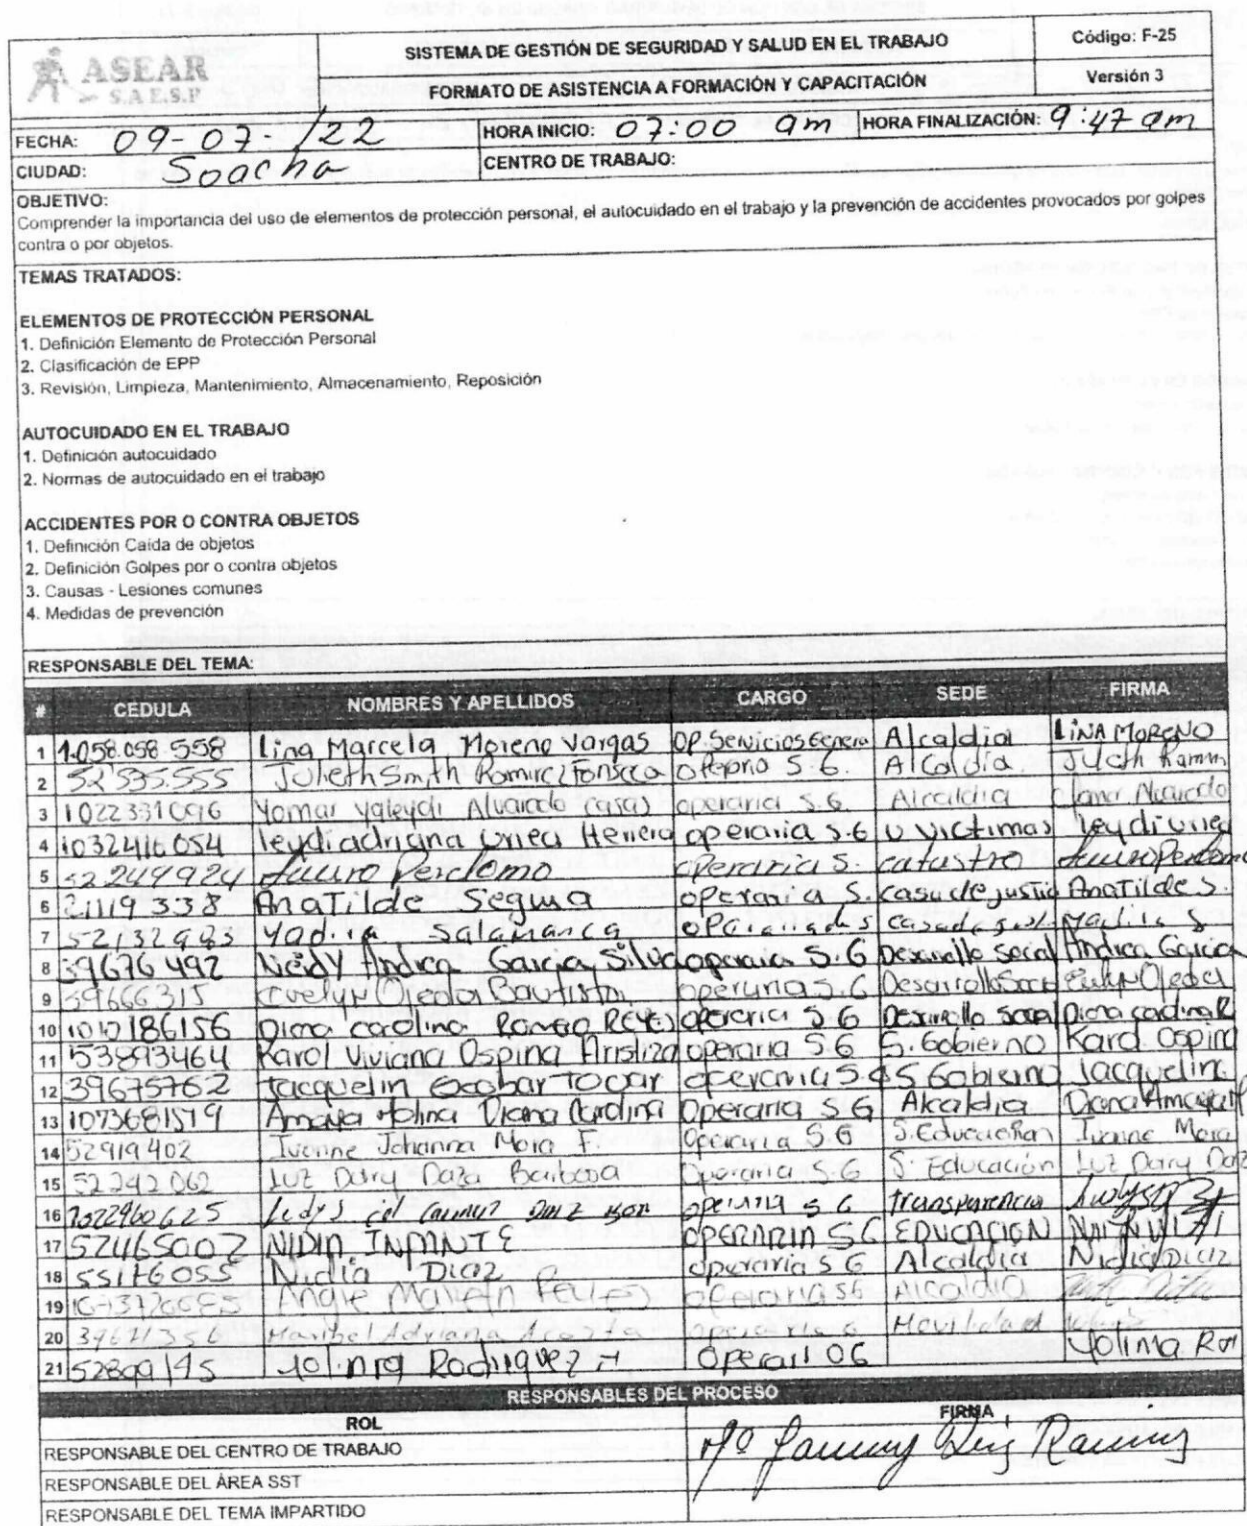 ASEAR
S.A E.S.P
SISTEMA DE GESTIÓN DE SEGURIDAD Y SALUD EN EL TRABAJO
Código: F-25
FORMATO DE ASISTENCIA A FORMACIÓN Y CAPACITACIÓN
Versión 3
FECHA: 09-07-/22 HORA INICIO: 07:00 am HORA FINALIZACIÓN: 9:47 am
CIUDAD: Soacha CENTRO DE TRABAJO:
OBJETIVO:
Comprender la importancia del uso de elementos de protección personal, el autocuidado en el trabajo y la prevención de accidentes provocados por golpes
contra o por objetos.
TEMAS TRATADOS:
ELEMENTOS DE PROTECCIÓN PERSONAL
1. Definición Elemento de Protección Personal
2. Clasificación de EPP
3. Revisión, Limpieza, Mantenimiento, Almacenamiento, Reposición
AUTOCUIDADO EN EL TRABAJO
1. Definición autocuidado
2. Normas de autocuidado en el trabajo
ACCIDENTES POR O CONTRA OBJETOS
1. Definición Caída de objetos
2. Definición Golpes por o contra objetos
3. Causas - Lesiones comunes
4. Medidas de prevención
RESPONSABLE DEL TEMA:
# CEDULA NOMBRES Y APELLIDOS CARGO SEDE FIRMA
1 1.058.058.558 Lina Marcela Moreno Vargas OP. Servicios General Alcaldia LiNA MORENO
2 52.535.555 Julieth Smith Ramirez Fonseca S.G. Alcaldia
3 1022331096 Yomar Yaleydi Alvarado casas operaria S.G. Alcaldia
4 1032416054 leydi adriana Urrea Herrera operaria S.G U victimas leydi urrea
5 52.249924 Perdomo operaria S. catastro Perdomo
6 21119338 AnaTilde Segura operaria S. casa de justia AnaTilde S.
7 52132983 Yadira Salamanca
8 39676492 Neidy Andrea Garcia Silva operaria S.G Desarrollo Social Andrea Garcia
9 39666315 Evelyn Ojeda Bautista operaria S.G Desarrollo Evelyn Ojeda
10 1010186156 Diana carolina Romero Reyes operaria S.G Desarrollo Social Diana carolina R
11 53893464 Karol Viviana Ospina Aristiza operaria S.G S. Gobierno Karol ospina
12 39675762 Jacquelin Escobar Tovar operaria S.G S Gobierno Jacquelin
13 1073681579 Amaya Molina Diana Carolina Operaria S G Alcaldia Diana Amaya
14 52919402 Ivonne Johanna Mora F. Operaria S G Ivonne Mora
15 52242062 Luz Dary Daza Barbosa Operaria S.G S. Educación Luz Dary Daza
16 operaria S G transparencia
17 52465002 NIDIA INFANTE OPERARIA S G EDUCACION
18 55176055 Nidia Diaz operaria S G Alcaldia Nidia Diaz
19 Angie operaria SG Alcaldia
20 Maribel Adriana Acosta Movilidad
21 52809195 Yolima Rodriguez Yolima
RESPONSABLES DEL PROCESO
ROL FIRMA
RESPONSABLE DEL CENTRO DE TRABAJO
RESPONSABLE DEL ÁREA SST
RESPONSABLE DEL TEMA IMPARTIDO